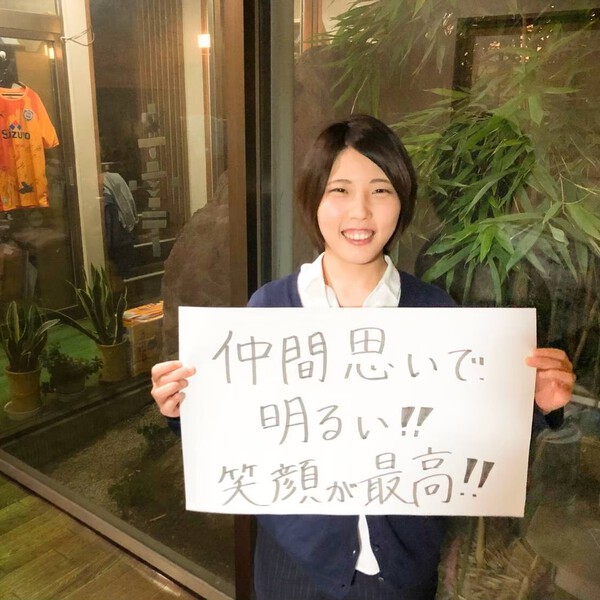 SUZUYO
仲間思いで
明るい!!
笑顔が最高!!